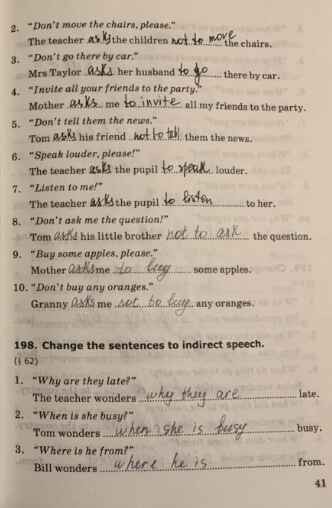 2. "Don't move the chairs, please."
The teacher asks the children not to move the chairs.
3. "Don't go there by car."
Mrs Taylor asks her husband to go there by car.
4. "Invite all your friends to the party."
Mother asks me to invite all my friends to the party.
5. "Don't tell them the news."
Tom asks his friend not to tell them the news.
6. "Speak louder, please!"
The teacher asks the pupil to speak louder.
7. "Listen to me!"
The teacher asks the pupil to listen to her.
8. "Don't ask me the question!"
Tom asks his little brother not to ask the question.
9. "Buy some apples, please."
Mother asks me to buy some apples.
10. "Don't buy any oranges."
Granny asks me not to buy any oranges.
198. Change the sentences to indirect speech.
(§ 62)
1. "Why are they late?"
The teacher wonders why they are late.
2. "When is she busy?"
Tom wonders when she is busy busy.
3. "Where is he from?"
Bill wonders where he is from.
41